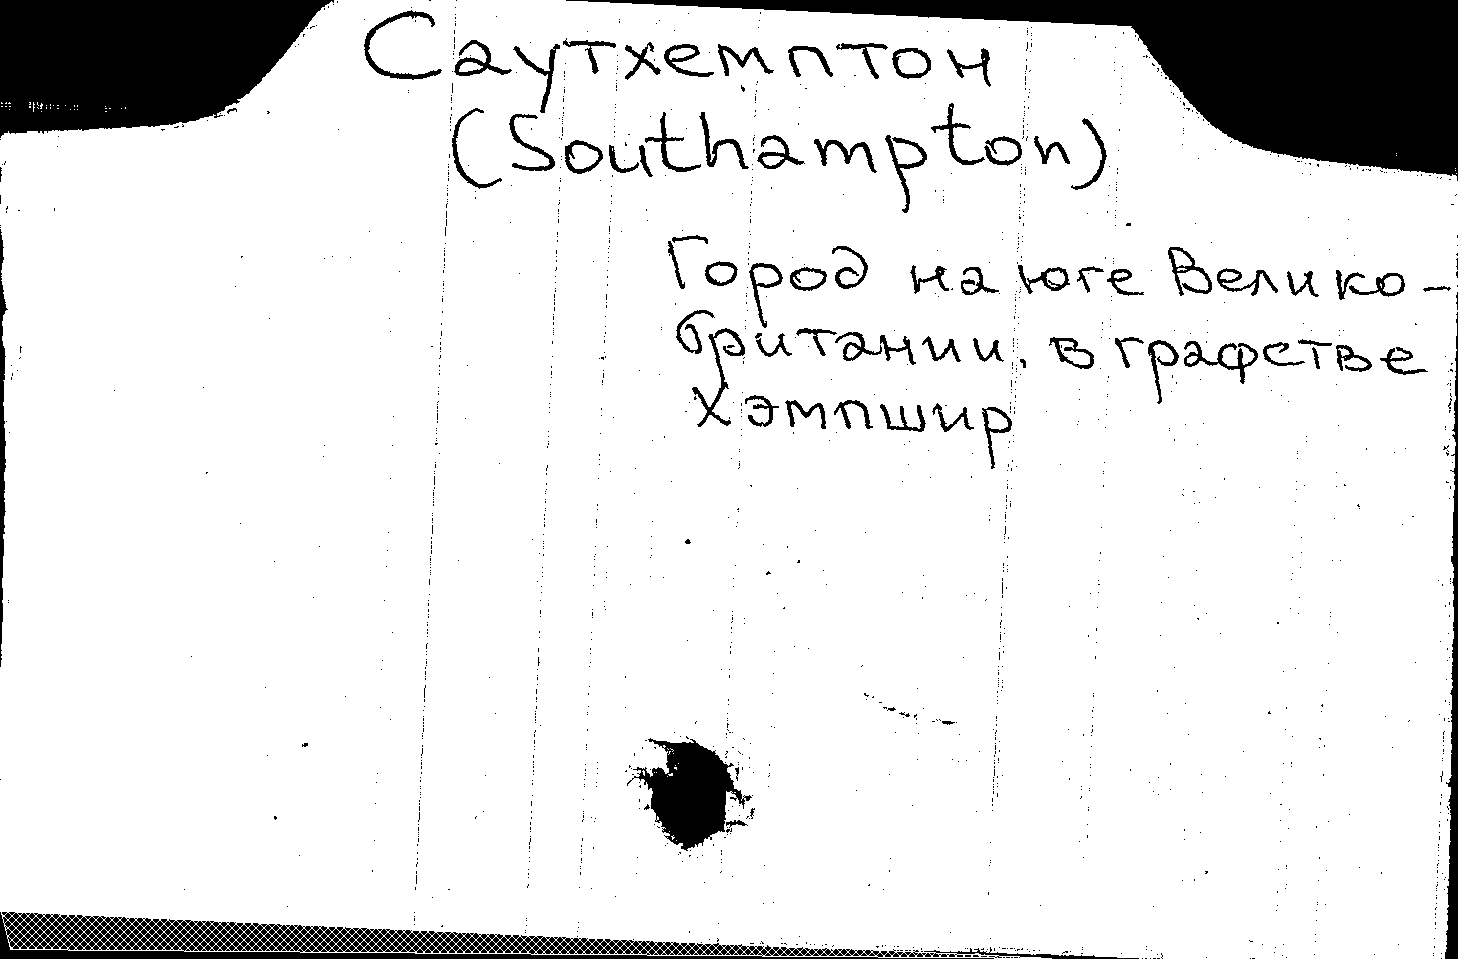 Саутхемптон
(Southampton)
Город на юге Велико-
британии, в графстве
Хэмпшир